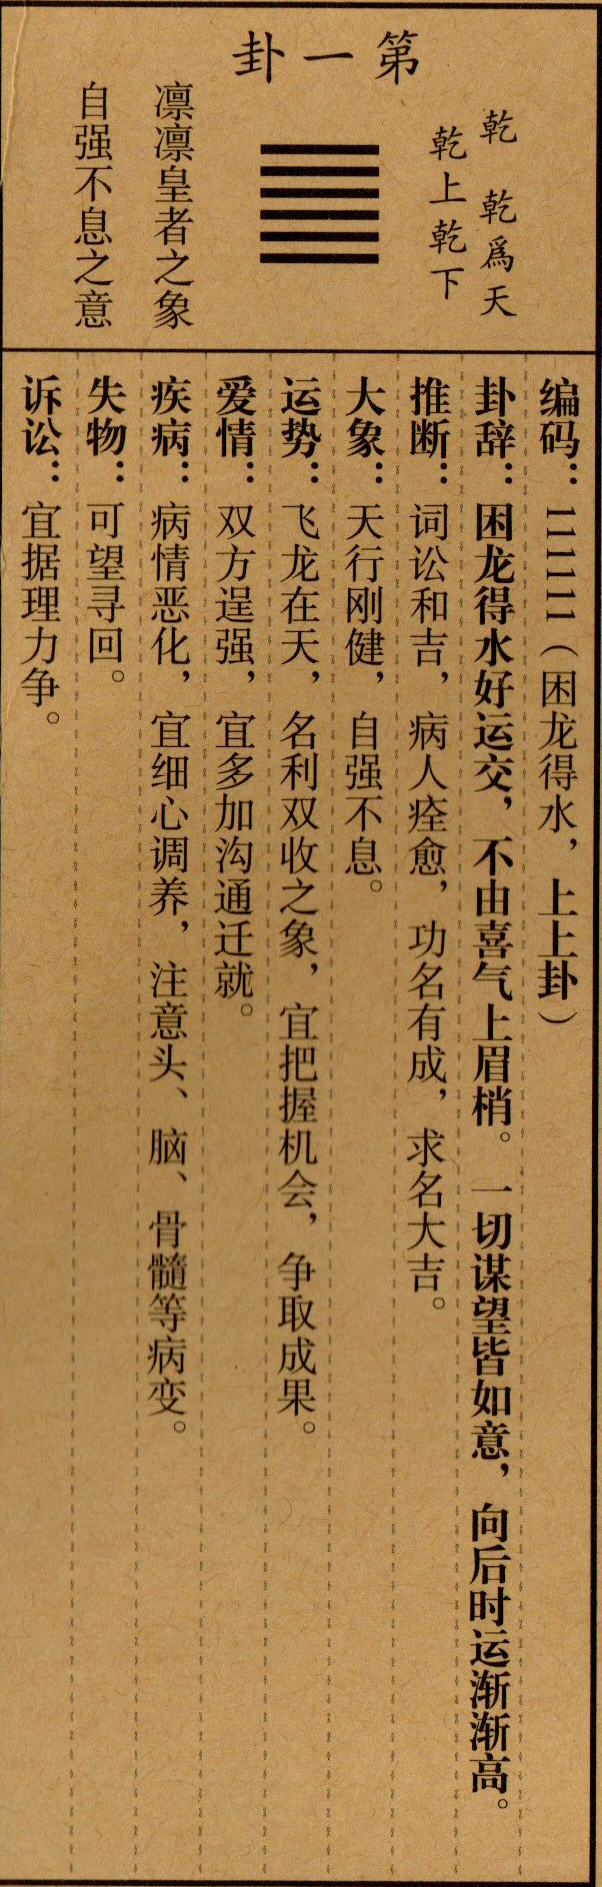 第一卦
乾 乾爲天
乾上乾下
凛凛皇者之象
自强不息之意
编码：111111（困龙得水，上上卦）
卦辞：困龙得水好运交，不由喜气上眉梢。一切谋望皆如意，向后时运渐渐高。
推断：词讼和吉，病人痊愈，功名有成，求名大吉。
大象：天行刚健，自强不息。
运势：飞龙在天，名利双收之象，宜把握机会，争取成果。
爱情：双方逞强，宜多加沟通迁就。
疾病：病情恶化，宜细心调养，注意头、脑、骨髓等病变。
失物：可望寻回。
诉讼：宜据理力争。